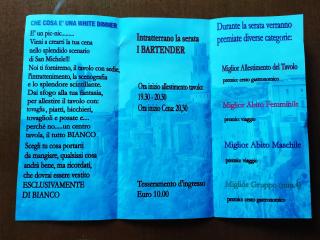 CHE COSA E' UNA WHITE DINNER
E' un pic-nic........
Vieni a crearti la tua cena
nello splendido scenario
di San Michele!!!
Noi ti forniremo, il tavolo con sedie,
l'intrattenimento, la scenografia
e lo splendore scintillante.
Dai sfogo alla tua fantasia,
per allestire il tavolo con:
tovaglia, piatti, bicchieri,
tovaglioli e posate e....
perchè no.....un centro
tavola, il tutto BIANCO
Scegli tu cosa portarti
da mangiare, qualsiasi cosa
andrà bene, ma ricordati,
che dovrai essere vestito
ESCLUSIVAMENTE
DI BIANCO
Intratterranno la serata
I BARTENDER
Ora inizio allestimento tavoli:
19.30 - 20.30
Ora inizio Cena: 20,30
Tesseramento d'ingresso
Euro 10.00
Durante la serata verranno
premiate diverse categorie:
Miglior Allestimento del Tavolo
premio: cesto gastronomico
Miglior Abito Femminile
premio: viaggio
Miglior Abito Maschile
premio: viaggio
Miglior Gruppo
premio: cesto gastronomico